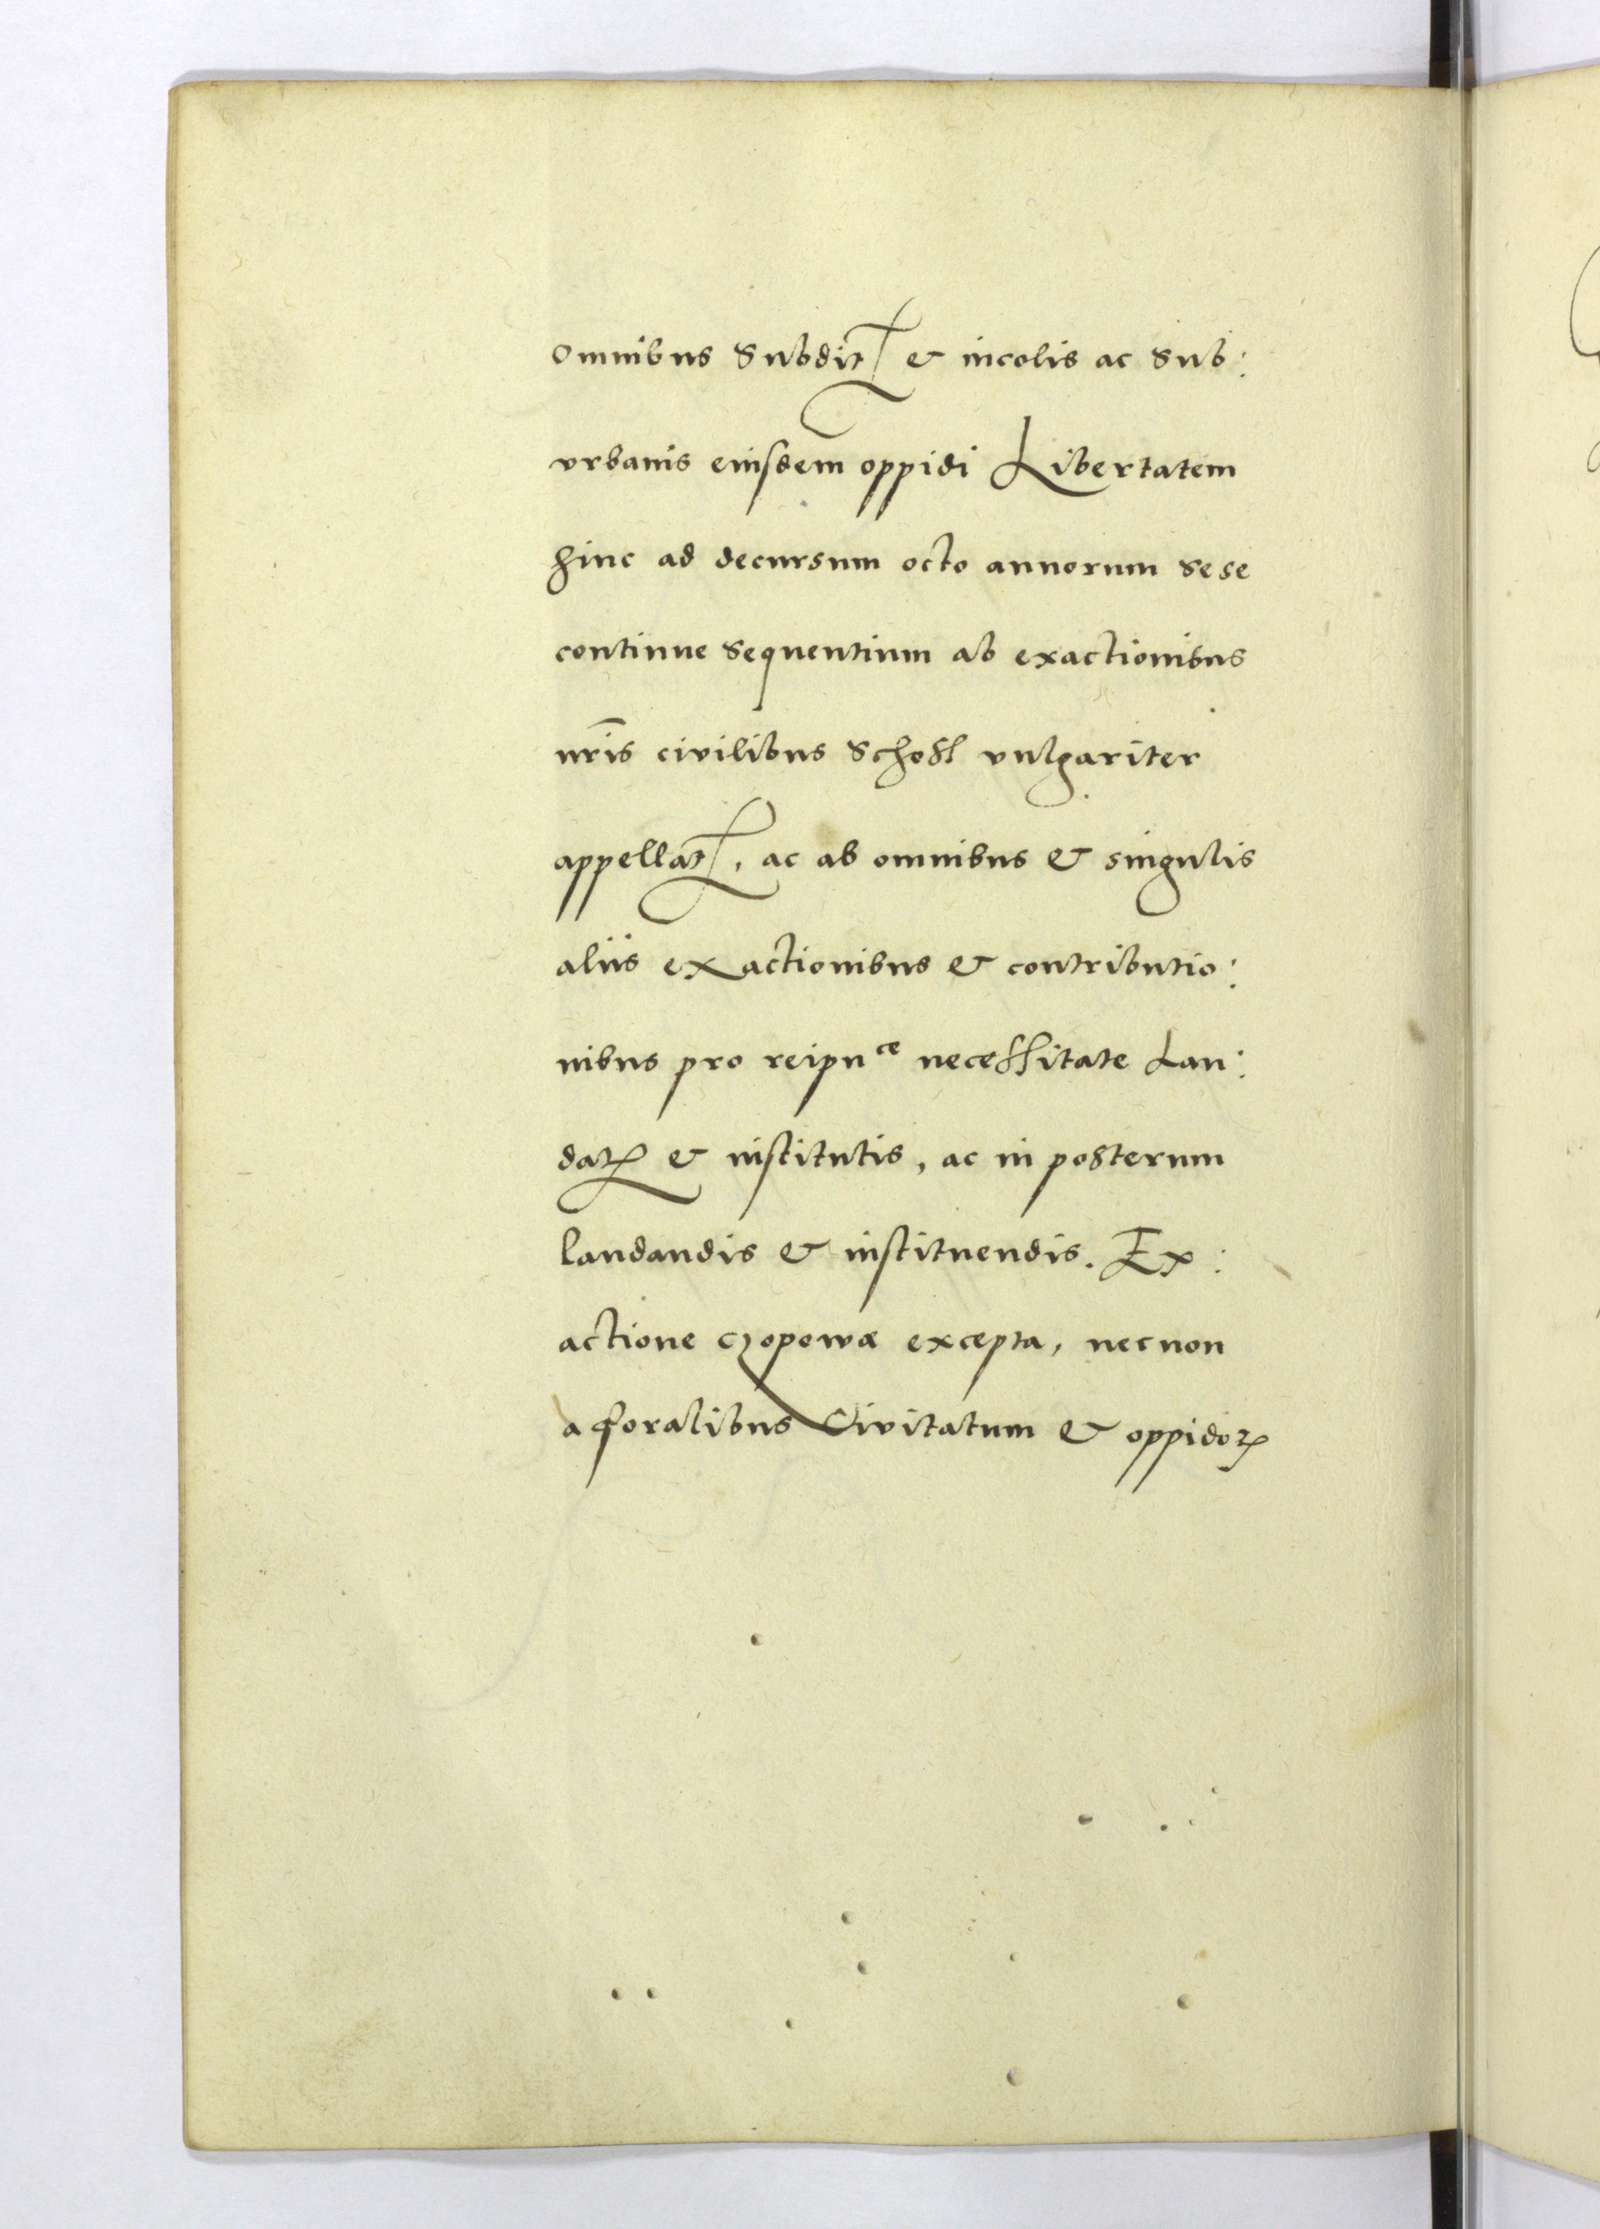 omnibus Subditꝭ & incolis ac Sub:
vrbanis eiusdem oppidi Libertatem
hinc ad decursum octo annorum sese
continue sequentium ab exactionibus
nr̄is civilibus Schosl vulgariter
appellatꝭ, ac ab omnibus & singulis
aliis exactionibus & contributio:
nibus pro reipuᶜᵉ necessitate Lau:
datꝭ & institutis, ac in posterum
laudandis & instituendis. Ex:
actione czopowæ excepta, necnon
a foralibus Civitatum & oppidoꝝ